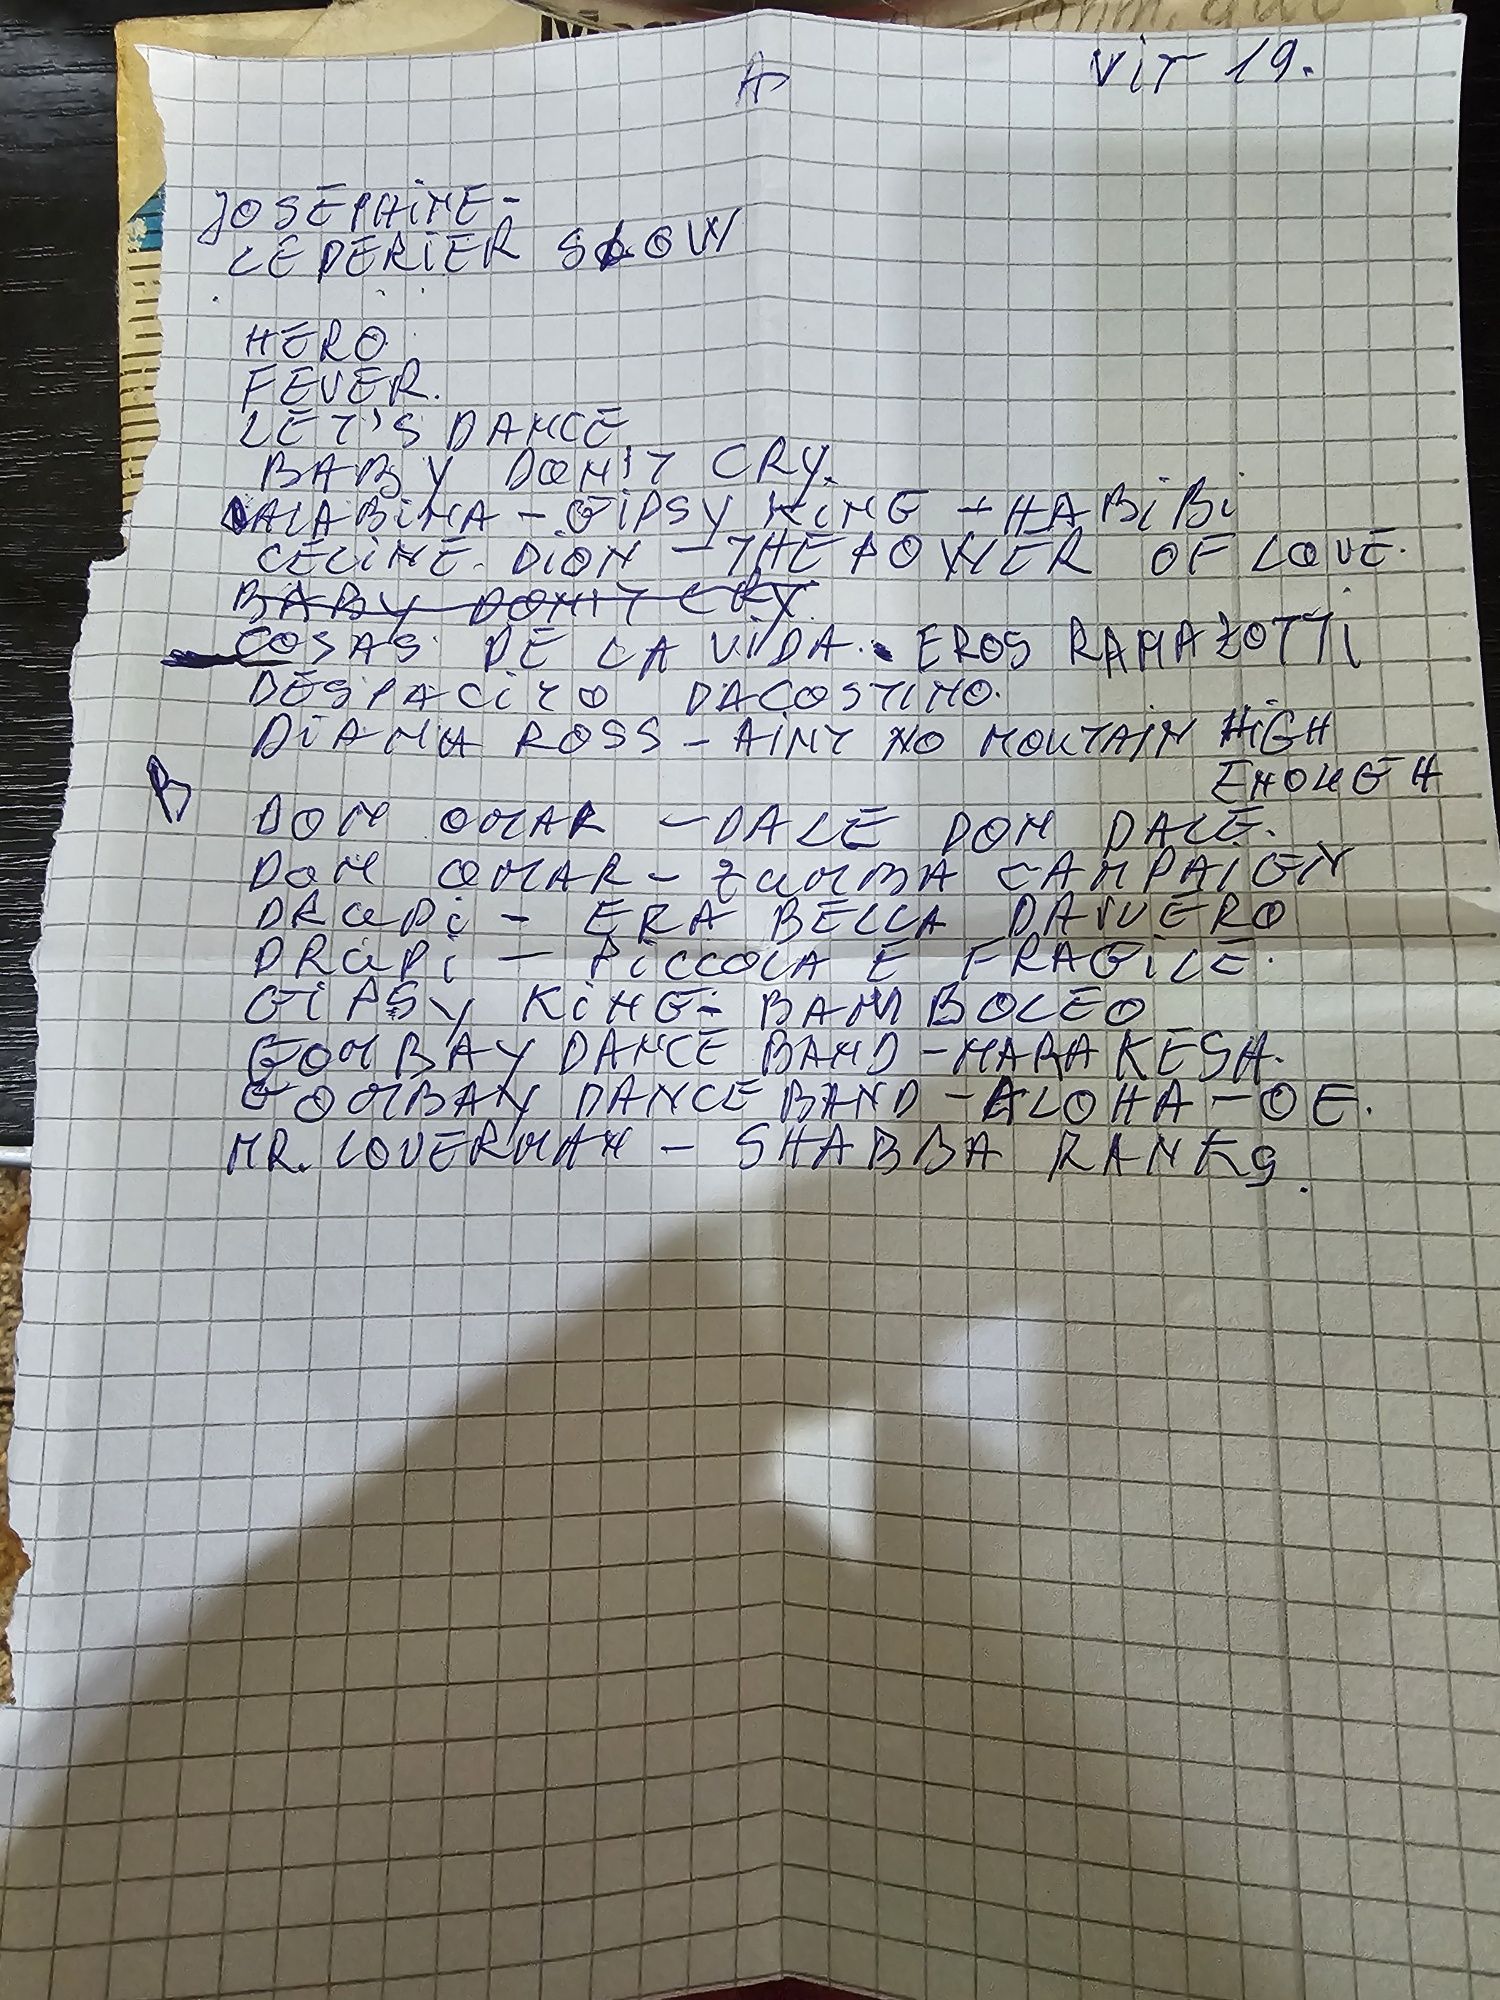 A
VIT 19.
JOSEPHINE-
LEDERIER SLOW
HERO
FEVER.
LET'S DANCE
BABY DON'T CRY.
ALABINA - GIPSY KING - HABIBI
CELINE DION - THE POWER OF LOVE.
BABY DON'T CRY
COSAS DE LA VIDA. EROS RAMAZOTTI
DESPACITO DACOSTINO.
DIANA ROSS - AINT NO MOUTAIN HIGH
ENOUGH
B
DON OMAR - DALE DON DALE.
DON OMAR - ZUMBA CAMPAIGN
DRUPI - ERA BELLA DAVVERO
DRUPI - PICCOLA E FRAGILE.
GIPSY KING - BAMBOLEO
GOMBAY DANCE BAND - MARAKESH.
GOMBAY DANCE BAND - ALOHA - OE.
MR. LOVERMAN - SHABBA RANKS.